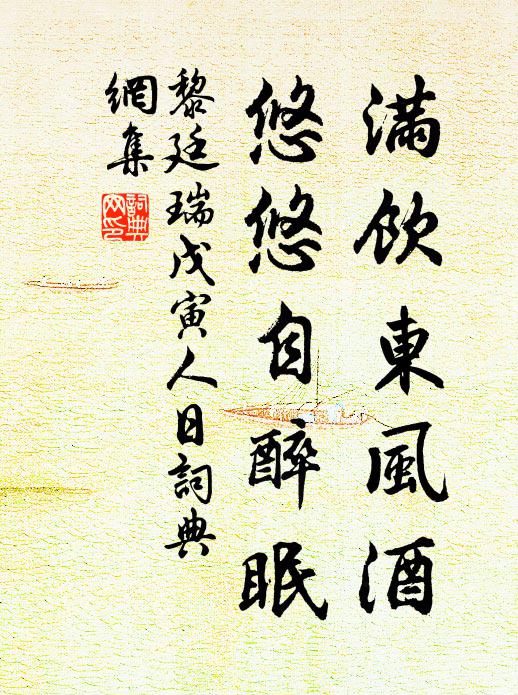 滿飲東風酒
悠悠自醉眠
黎廷瑞戊寅人日詞典
網集
詞典
网印